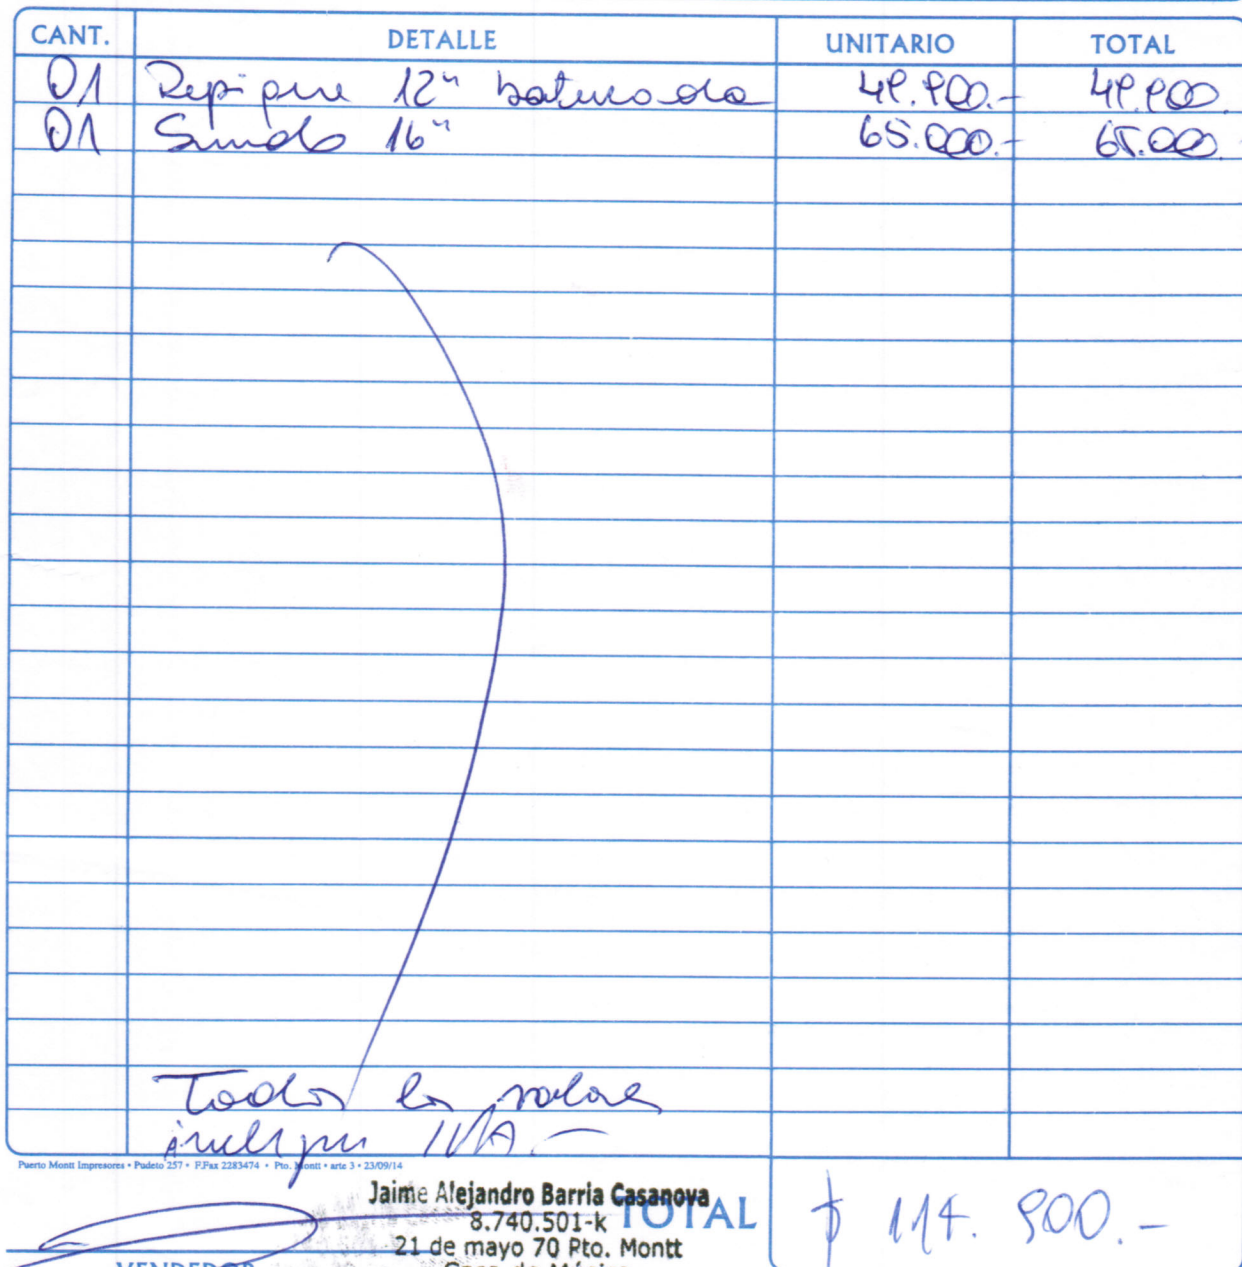 CANT. DETALLE UNITARIO TOTAL
01 Repique 12" batucada 49.900.- 49.900.
01 Surdo 16" 65.000.- 65.000.-
Todos los valores
incluyen IVA.-
Puerto Montt Impresores • Pudeto 257 • F.Fax 2283474 • Pto. Montt • arte 3 • 23/09/14
Jaime Alejandro Barria Casanova
8.740.501-k
TOTAL $ 114.900.-
21 de mayo 70 Pto. Montt
VENDEDOR
Casa de Música